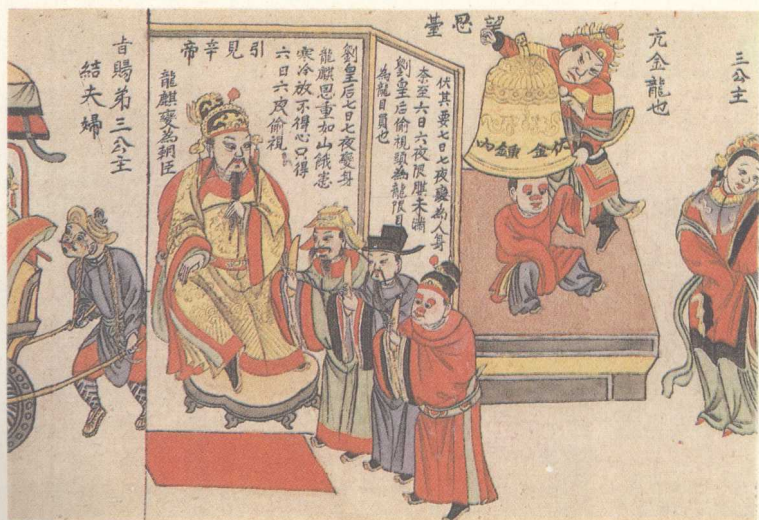 三公主
亢金龍也
望思臺
伏金鐘内
伏其要七日七夜變為人身
奈至六日六夜限期未滿
劉皇后偷視頭為龍限目
為龍目員也
劉皇后七日七夜變身
龍麒思重如山餓患
寒冷放不得心只得
六日六夜偷視
引見辛帝
龍麒變為朝臣
旨賜第三公主
結夫婦